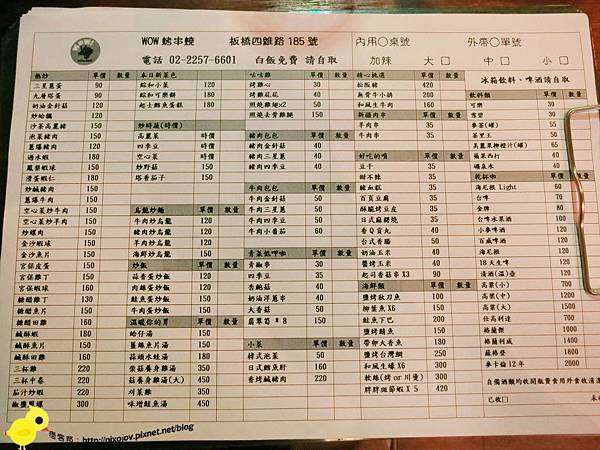 WOW 烤串燒 板橋四維路 185 號 內用○桌號 外帶○單號
電話 02-2257-6601 白飯免費 請自取 加辣 大□ 中□ 小□
熱炒 單價 數量
三星蔥蛋 90
九層塔蛋 90
奶油金針菇 120
炒蛤蠣 120
沙茶高麗豬 150
泡菜豬肉 150
蔥爆豬肉 150
過水蝦 180
鳳梨蝦球 150
滑蛋蝦仁 180
炒鹹豬肉 150
蔥爆牛肉 150
空心菜炒牛肉 150
空心菜炒羊肉 150
炒螺肉 150
金沙蝦球 150
金沙魚片 150
宮保皮蛋 150
宮保雞丁 150
宮保蝦球 160
糖醋雞丁 130
糖醋魚片 150
糖醋田雞 160
鹹酥蝦 180
鹹酥魚片 150
鹹酥田雞 160
三杯雞 220
三杯中卷 220
茄汁炒蝦 220
椒鹽鳳螺 300
本日新菜色
綜和小菜 120
綜和可樂餅 180
起士鱈魚蛋糕 180
炒時蔬(時價)
高麗菜 時價
四季豆 時價
空心菜 時價
炒野菇 150
塔香茄子 150
烏龍炒麵 單價 數量
牛肉炒烏龍 120
豬肉炒烏龍 120
羊肉炒烏龍 120
海鮮炒烏龍 150
炒飯 單價 數量
蒜香蛋炒飯 120
肉絲蛋炒飯 120
鮭魚蛋炒飯 150
牛肉蛋炒飯 150
溫暖你的胃 單價 數量
蛤仔湯 150
薑絲魚片湯 150
蒜頭水蛙湯 180
柴菇養身雞湯 350
菇養身雞湯(大) 450
刈菜雞 350
味增鮭魚湯 450
咕咕雞 單價 數量
烤雞心 30
烤雞花花 40
照燒雞翅x2 50
照燒去骨雞腿 150
豬肉包包 單價 數量
豬肉金針菇 40
豬肉三星蔥 40
豬肉四季豆 40
牛肉包包 單價 數量
牛肉金針菇 50
牛肉三星蔥 50
牛肉四季豆 50
牛肉小番茄 60
青菜低呷咖 單價 數量
青椒串 30
四季豆 35
杏鮑菇 40
奶油洋蔥串 30
大香菇 50
翡翠筍 * 8 150
小菜 單價 數量
韓式泡菜 50
日式鱈魚肝 160
香烤鹹豬肉 220
精心挑選 單價 數量
松阪豬 420
無骨牛小排 200
和風生牛肉 160
新疆肉串 單價 數量
羊肉串 35
牛肉串 35
好吃的唷 單價 數量
豆干 35
甜不辣 35
豬血糕 35
百頁豆腐 35
酥脆烤豆皮 35
日式麻糬燒 35
香Q貢丸 40
台式香腸 50
奶油玉米 40
醬烤玉米 40
起司香菇串 X3 90
海鮮類 單價 數量
鹽烤秋刀魚 100
柳葉魚 X6 150
鮭魚下巴 200
鹽烤鯖魚 150
帶卵大香魚 180
鹽烤台灣鯛 250
和風生蠔 X6 300
軟翅(烤 or 川燙) 300
胖胖斑節蝦 X 5 420
冰箱飲料、啤酒請自取
飲料類 單價 數量
可樂 30
雪碧 30
麥茶(罐) 55
茶里王 50
美粒果柳橙汁(罐) 65
蘋果西打 40
礦泉水 40
乾杯咖 單價 數量
海尼根 Light 60
台啤 70
金牌 80
台啤水果酒 90
小麥啤酒 120
百威啤酒 120
海尼根 120
18 天生啤 120
清酒(溫)壺 120
高粱(小) 700
高粱(中) 700
高粱(大) 1500
仕高利達 700
格蘭傑 1500
格蘭利威 1400
蘇格登 1800
麥卡倫 12 年 2000
自備酒類均收開瓶費食用外食收清潔
已收□
痞客邦:http://nixojov.pixnet.net/blog